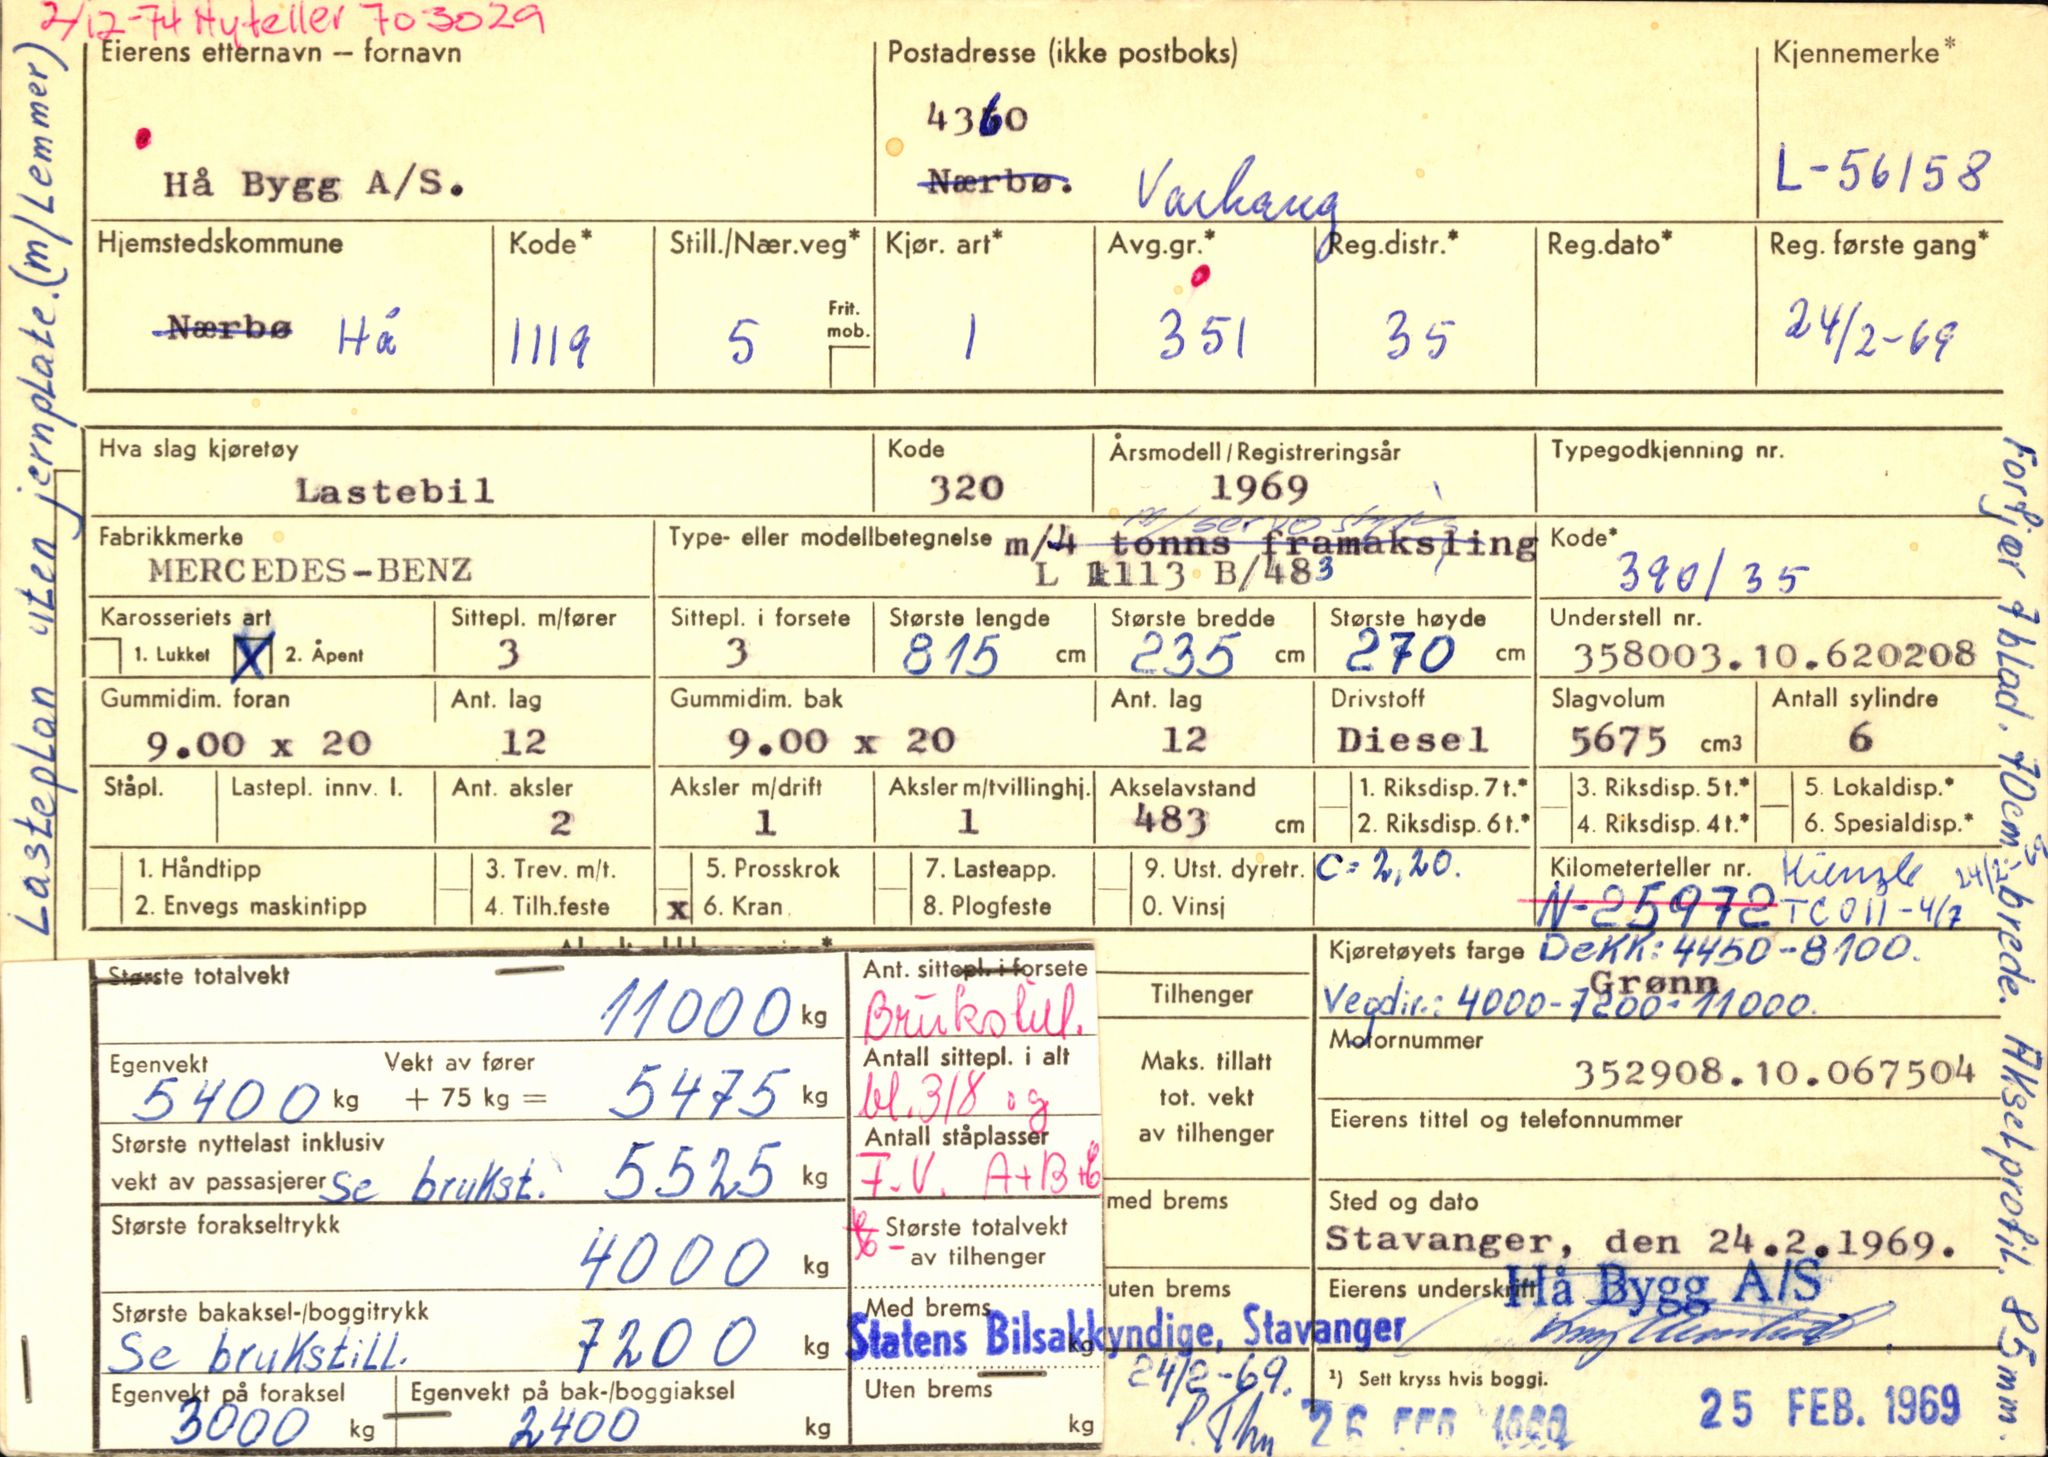 2/12-74 Ny teller 703029
Lasteplan uten jernplate. (m/Lemmer)
Eierens etternavn – fornavn
Postadresse (ikke postboks)
Kjennemerke*
4360
Hå Bygg A/S.
Nærbø. Varhaug
L-56158
Hjemstedskommune
Kode*
Still./Nær.veg*
Kjør. art*
Avg.gr.*
Reg.distr.*
Reg.dato*
Reg. første gang*
Nærbø Hå
1119
5
Frit. mob.
1
351
35
24/2-69
Hva slag kjøretøy
Lastebil
Kode
320
Årsmodell/Registreringsår
1969
Typegodkjenning nr.
Fabrikkmerke
MERCEDES-BENZ
Type- eller modellbetegnelse
m/servostyring
m/4 tonns framaksling
L 1113 B/483
Kode*
390/35
Karosseriets art
1. Lukket X 2. Åpent
Sittepl. m/fører
3
Sittepl. i forsete
3
Største lengde
815 cm
Største bredde
235 cm
Største høyde
270 cm
Understell nr.
358003.10.620208
Gummidim. foran
9.00 x 20
Ant. lag
12
Gummidim. bak
9.00 x 20
Ant. lag
12
Drivstoff
Diesel
Slagvolum
5675 cm3
Antall sylindre
6
Ståpl.
Lastepl. innv. l.
Ant. aksler
2
Aksler m/drift
1
Aksler m/tvillinghj.
1
Akselavstand
483 cm
1. Riksdisp. 7 t.*
2. Riksdisp. 6 t.*
3. Riksdisp. 5 t.*
4. Riksdisp. 4 t.*
5. Lokaldisp.*
6. Spesialdisp.*
1. Håndtipp
2. Envegs maskintipp
3. Trev. m/t.
4. Tilh.feste
5. Prosskrok
x 6. Kran
7. Lasteapp.
8. Plogfeste
9. Utst. dyretr.
0. Vinsj
C = 2,20.
Kilometerteller nr. Kienzle
N-25972 TC011-4/7
Største totalvekt
11000 kg
Egenvekt
5400 kg
Vekt av fører
+ 75 kg = 5475 kg
Største nyttelast inklusiv
vekt av passasjerer Se brukst. 5525 kg
Største forakseltrykk
4000 kg
Største bakaksel-/boggitrykk
Se brukstill. 7200 kg
Egenvekt på foraksel
3000 kg
Egenvekt på bak-/boggiaksel
2400 kg
Ant. sittepl. i forsete
Brukstill.
Antall sittepl. i alt
bl. 3/8 og
Antall ståplasser
F.V. A+B+C
Største totalvekt
av tilhenger
Med brems
kg
Uten brems
kg
Tilhenger
Maks. tillatt
tot. vekt
av tilhenger
med brems
uten brems
Statens Bilsakkyndige, Stavanger
24/2-69.
Kjøretøyets farge Dekk: 4450-8100.
Grønn
Vegdir.: 4000-7200-11000.
Motornummer
352908.10.067504
Eierens tittel og telefonnummer
Sted og dato
Stavanger, den 24.2.1969.
Eierens underskrift
Hå Bygg A/S
¹) Sett kryss hvis boggi.
26 FEB 1969
25 FEB. 1969
Forfjær 7 blad. 70cm. brede. Akselprofil. 85mm.